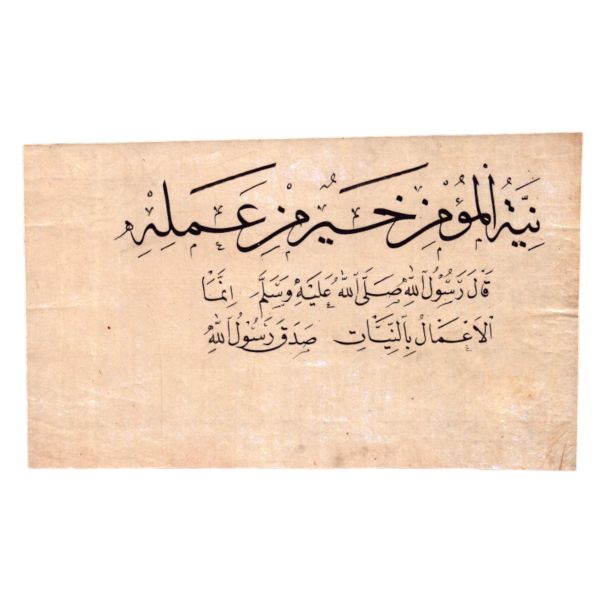 نِيَّةُ الْمُؤْمِنِ خَيْرٌ مِنْ عَمَلِهِ
قَالَ رَسُولُ اللهِ صَلَّى اللهُ عَلَيْهِ وَسَلَّمَ اِنَّمَا
الْاَعْمَالُ بِالنِّيَّاتِ صَدَقَ رَسُولُ اللهِ